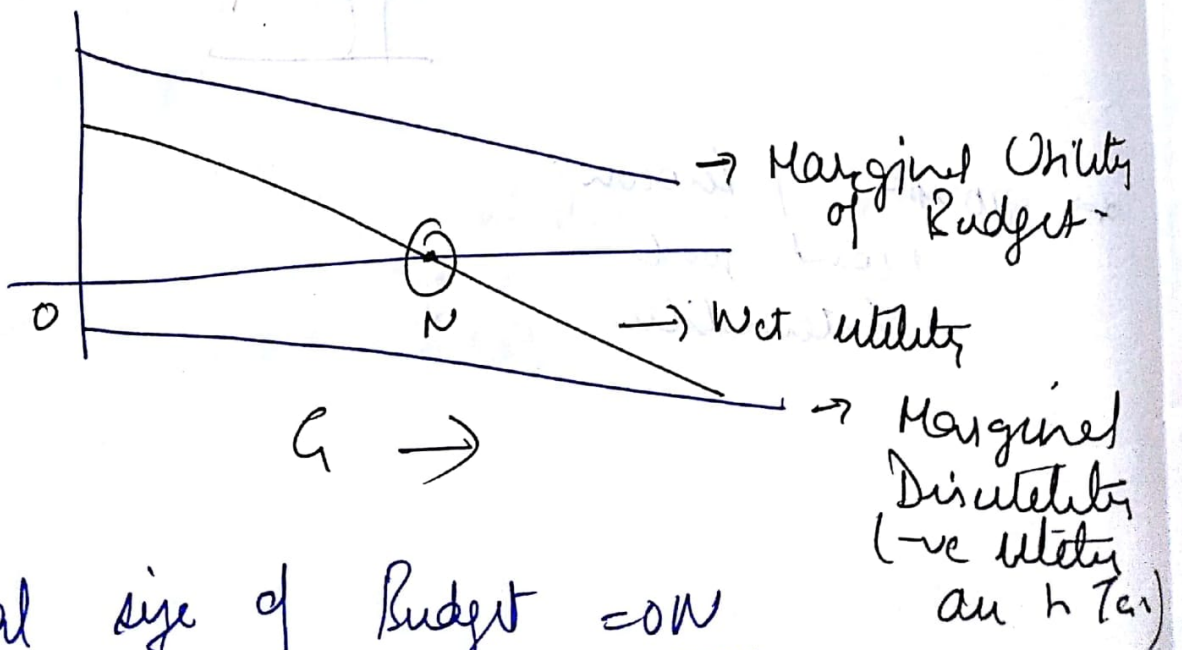 → Marginal Utility
of Budget
O
N
→ Net utility
G →
→ Marginal
Disutility
(-ve utility
Tax)
al size of Budget = ON